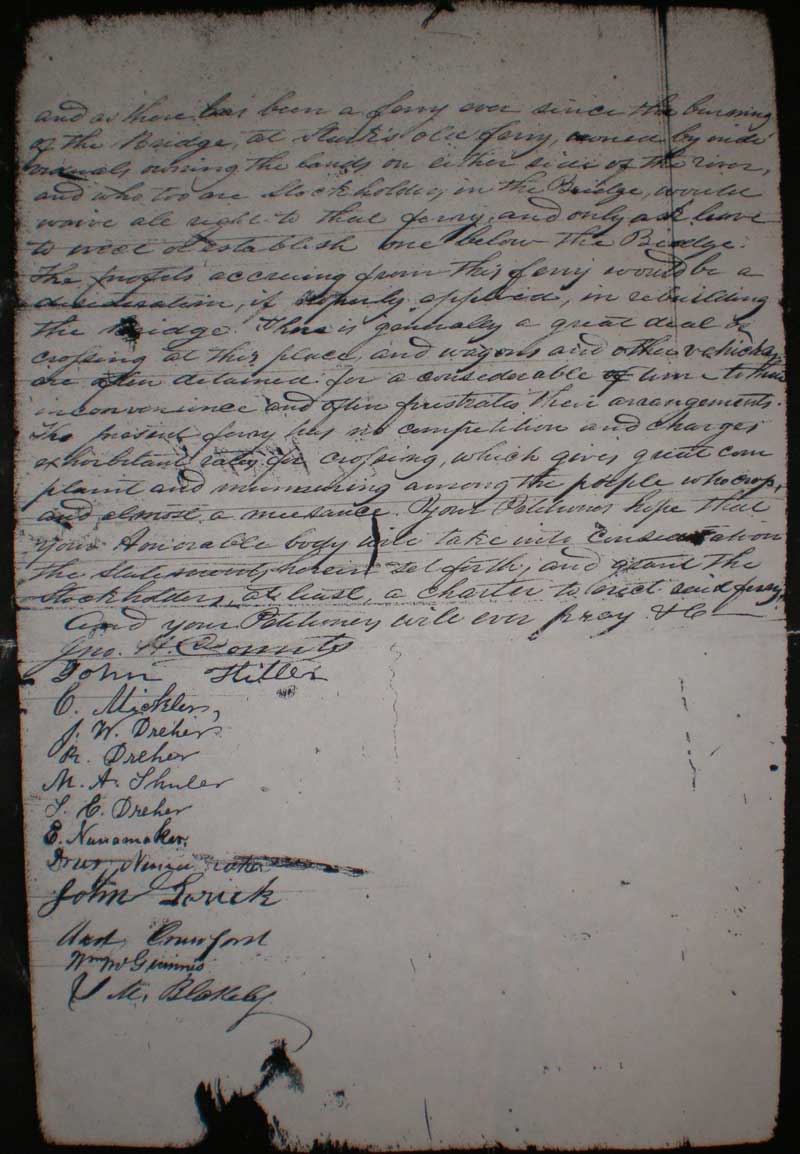 and as there has been a ferry ever since the burning
of the Bridge, at old ferry, owned by indi
viduals owning the lands on either side of the river,
and who too are Stockholders in the Bridge, would
waive all right to that ferry, and only ask leave
to establish one below the Bridge.
The profits accruing from this ferry would be a
if properly applied, in rebuilding
the Bridge. There is generally a great deal of
crossing at this place, and wagons and other vehicles
are often detained for a considerable of time to their
inconvenience and often frustrates their arrangements.
The present ferry has no competition and charges
exhorbitant rates for crossing, which gives great com
plaint and murmuring among the people who cross,
and almost a nuesance. Your Petitioners hope that
your Honorable body will take into consideration
the statements herein set forth, and grant the
Stockholders, at least, a charter to erect said ferry,
And your Petitioners will ever pray &C
Jno. H. Counts
John Hiller
C. Mickler,
J. W. Dreher
R. Dreher
M. A. Shuler
S. E. Dreher
E. Nunamaker.
Drury
John Lorick
Crawford
Wm McGuinnis
M. Blakely